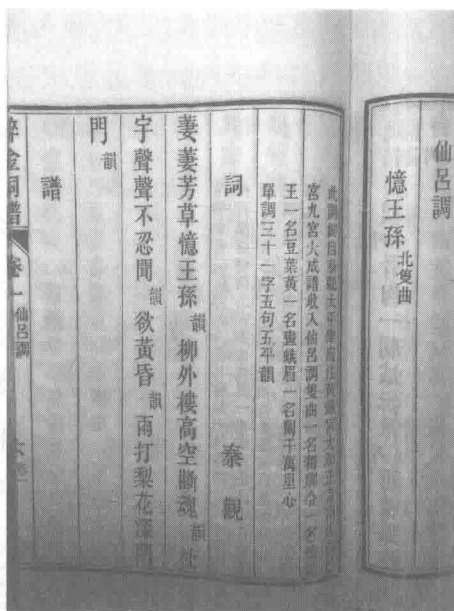 仙呂調
憶王孫 北隻曲
此調創自秦觀太平樂府注黃鐘宮太
宮九宮大成譜收入仙呂調隻曲一名獨脚令一名憶
王一名豆葉黃一名畫蛾眉一名闌干萬里心
單調三十一字五句五平韻
詞 秦觀
萋萋芳草憶王孫 韻 柳外樓高空斷魂 韻 杜
宇聲聲不忍聞 韻 欲黃昏 韻 雨打梨花深閉
門 韻
譜
碎金詞譜 卷一 仙呂調 六